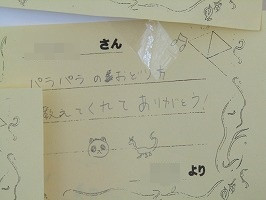 さん
パラパラのおどり方
教えてくれてありがとう!
より